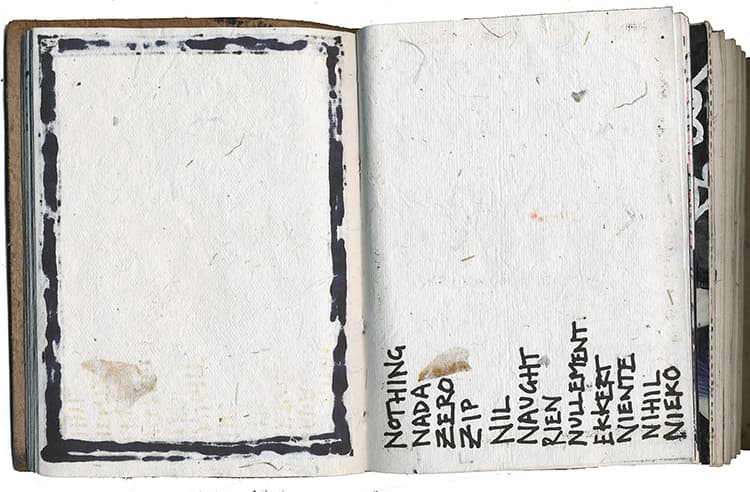 NOTHING
NADA
ZERO
ZIP
NIL
NAUGHT
RIEN
NULLEMENT
EKKERT
NIENTE
NIHIL
NIEKO